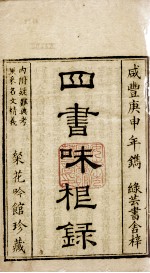 咸豐庚申年鐫
綠芸書舍梓
四書味根錄
內附疑難典考
聚花吟館珍藏